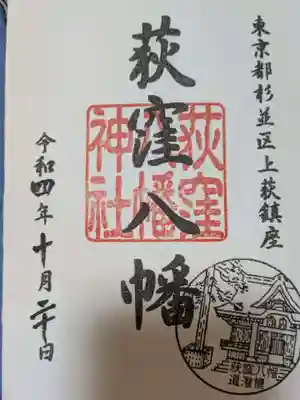 東京都杉並区上荻鎮座
荻窪八幡
荻窪
八幡
神社
令和四年十月二十日
荻窪八幡